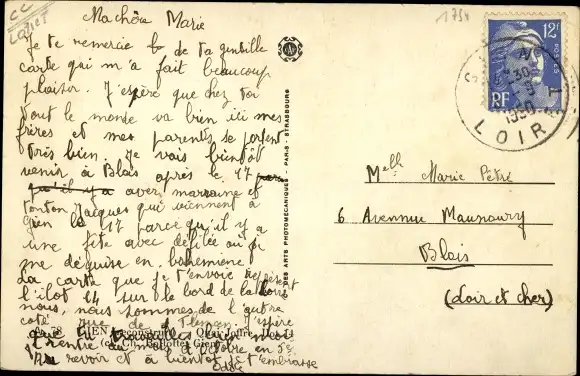 CC
Loiret
1754
Machôu Marie
Je te remercie b de ta gentille
carte qui m'a fait beaucoup
plaisir. J'espère que chez toi
tout le monde va bien ici mes
frères et mes parents se portent
très bien. Je vais bientôt
venir à Blois après le 17
qu'il y a avec marraine et
tonton Jacques qui viennent à
Gien le 17 parce qu'il y a
une fête avec défilée où je
me déguise en bohémienne
La carte que je t'envoie représente
l'îlot 14 sur le bord de la Loire
nous, nous sommes de l'autre
coté rue de J'espère
que tu
rentre au mois d'octobre en 5e
Au revoir et à bientôt je t'embrasse
Odile
78 GIEN Reconstruit Quai Joffre Ilot 14
Gien
DES ARTS PHOTOMECANIQUES - PARIS - STRASBOURG
12F
POSTES
RF
30
1950
LOIRET
Melle Marie Pétré
6 Avennue Maunoury
Blois
(Loir et cher)